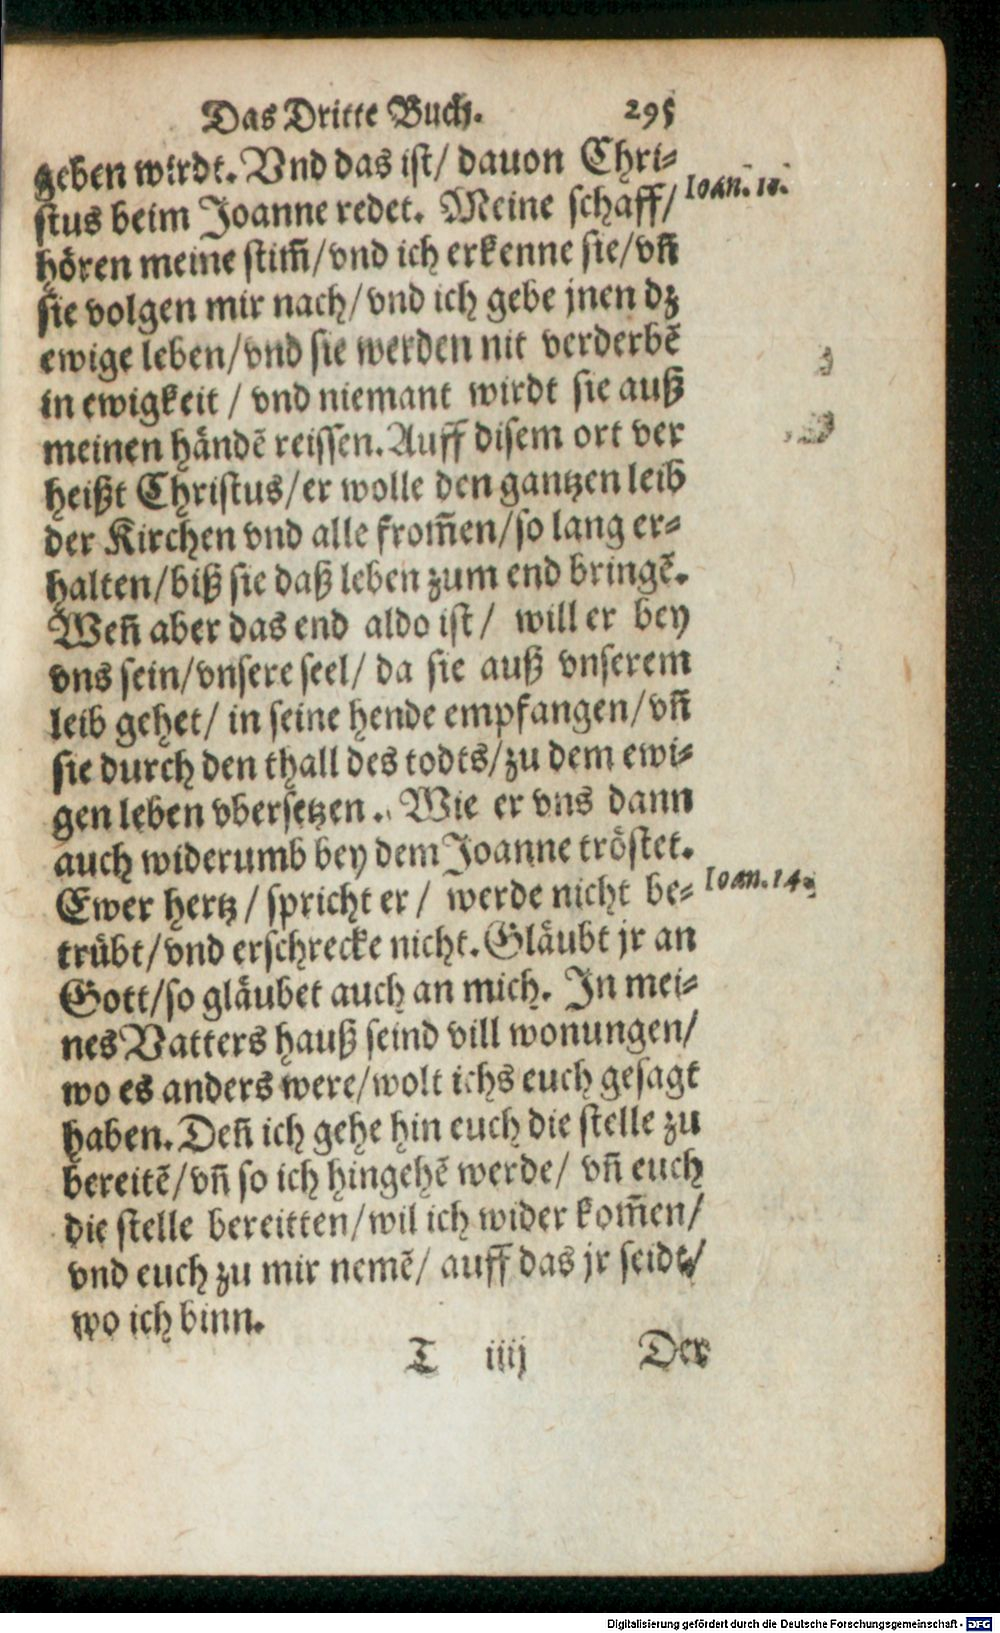 Das Dritte Buch. 295
geben wirdt. Vnd das ist/ dauon Chri⸗
stus beim Joanne redet. Meine schaff/ Ioan. 10.
hören meine stim̃/vnd ich erkenne sie/vñ
sie volgen mir nach/vnd ich gebe jnen dz
ewige leben/vnd sie werden nit verderbẽ
in ewigkeit / vnd niemant wirdt sie auß
meinen händẽ reissen. Auff disem ort ver
heißt Christus/er wolle den gantzen leib
der Kirchen vnd alle from̃en/so lang er⸗
halten/biß sie daß leben zum end bringẽ.
Weñ aber das end aldo ist/ will er bey
vns sein/vnsere seel/ da sie auß vnserem
leib gehet/ in seine hende empfangen/vñ
sie durch den thall des todts/zu dem ewi⸗
gen leben vbersetzen. Wie er vns dann
auch widerumb bey dem Joanne tröstet.
Ewer hertz/ spricht er/ werde nicht be⸗ Ioan. 14.
trübt/vnd erschrecke nicht. Gläubt jr an
Gott/so gläubet auch an mich. In mei⸗
nes Vatters hauß seind vill wonungen/
wo es anders were/wolt ichs euch gesagt
haben. Deñ ich gehe hin euch die stelle zu
bereitẽ/vñ so ich hingehẽ werde/ vñ euch
die stelle bereitten/wil ich wider kom̃en/
vnd euch zu mir nemẽ/ auff das jr seidt/
wo ich binn.
T iiij Der
Digitalisierung gefördert durch die Deutsche Forschungsgemeinschaft - DFG